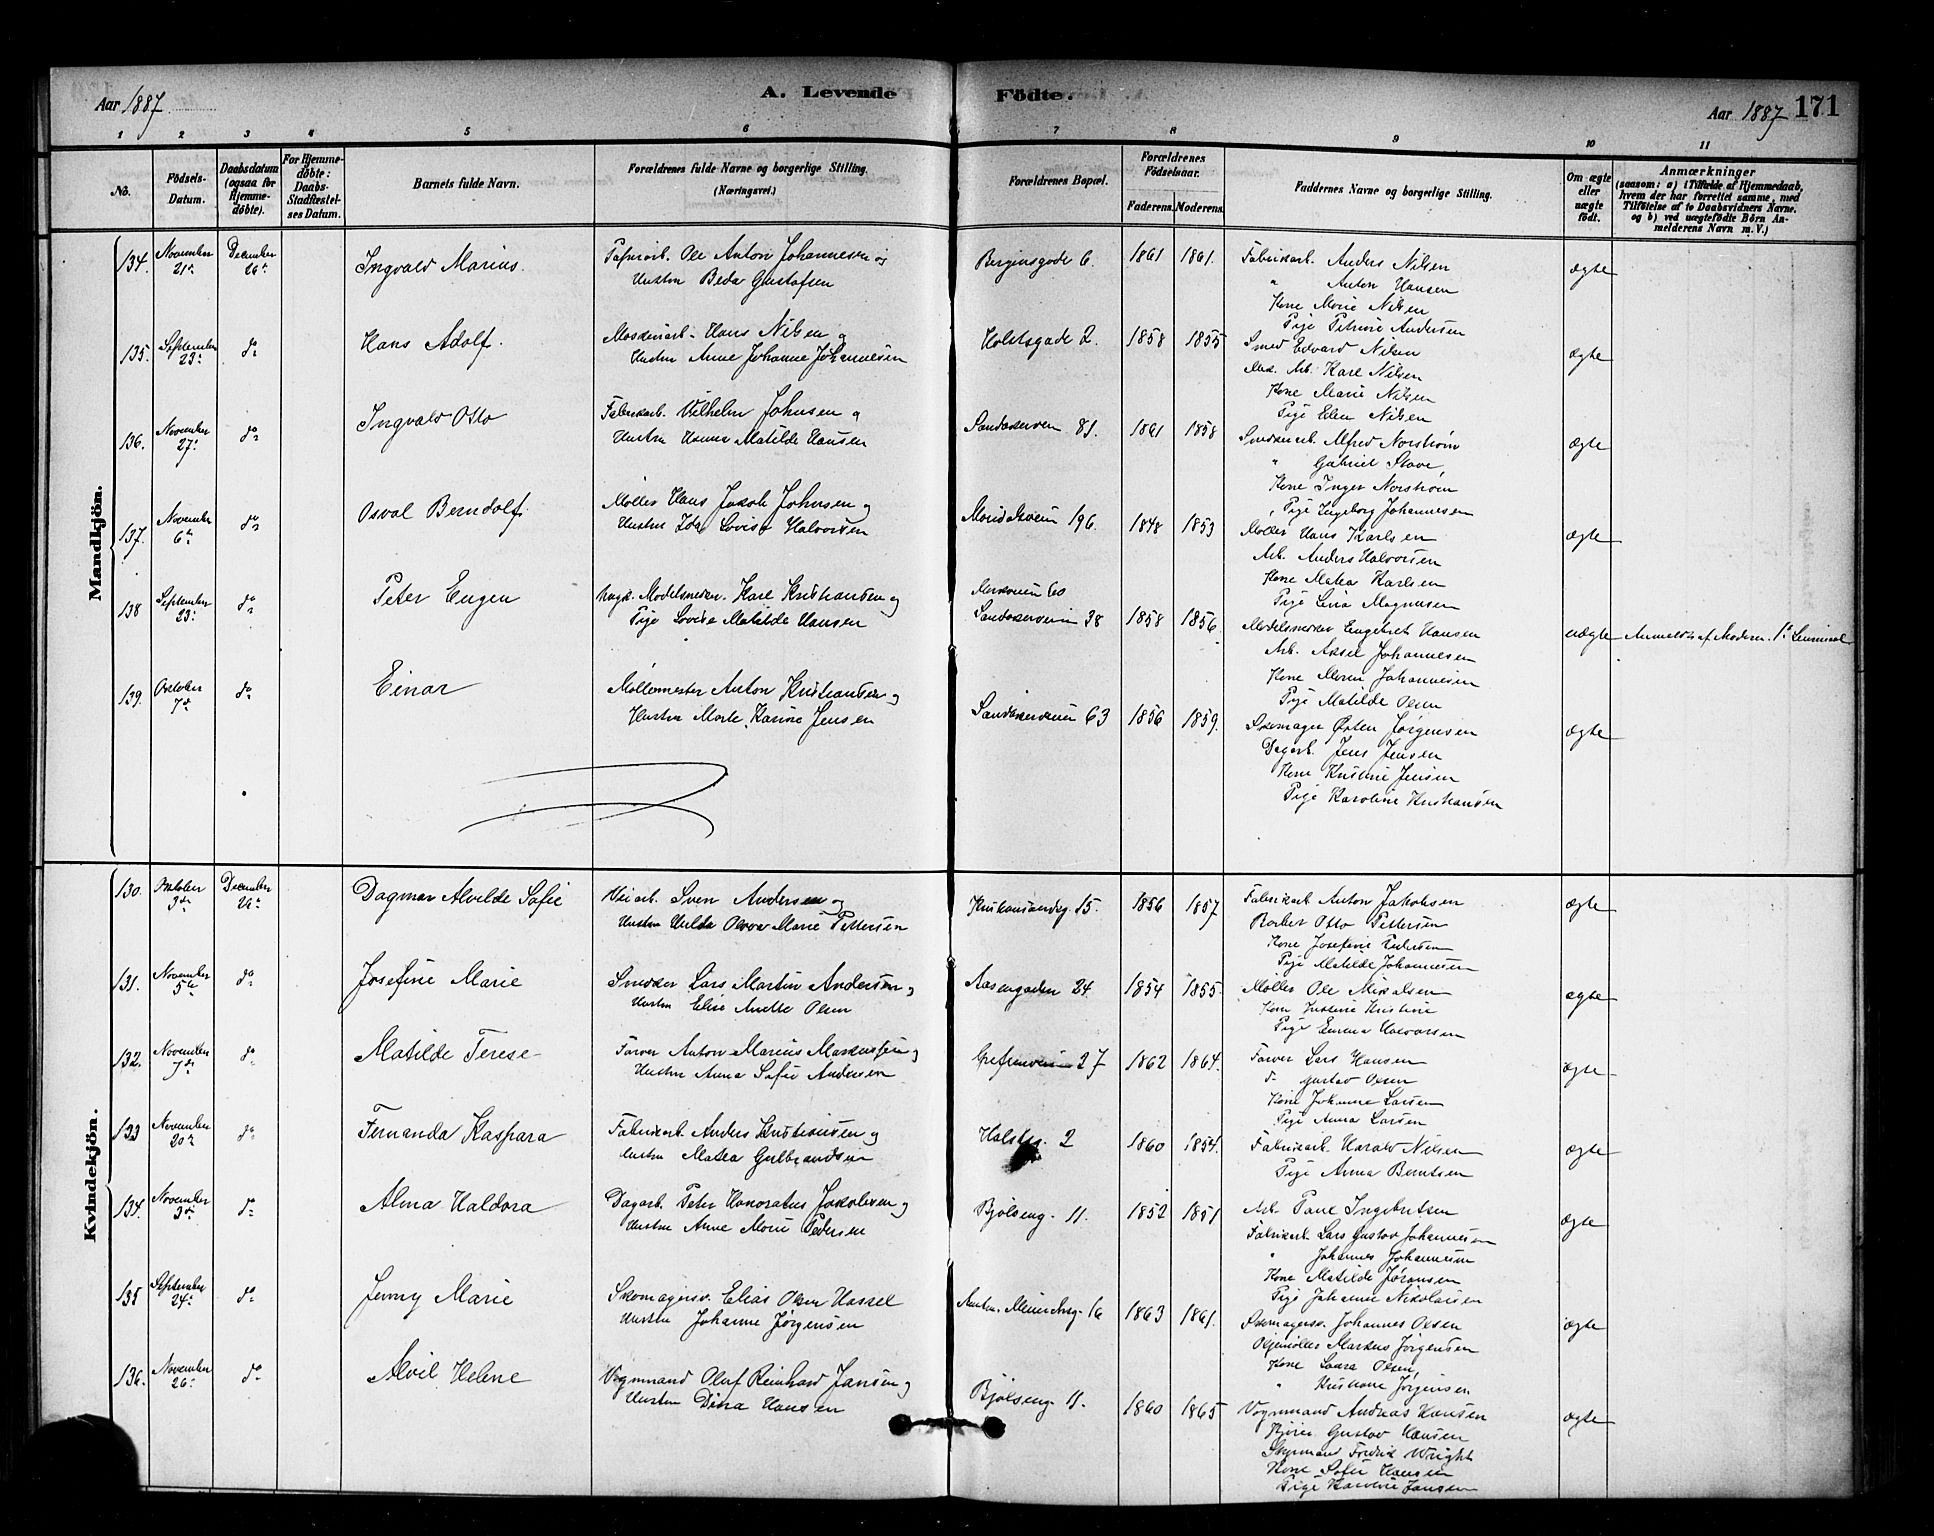 Aar 1887 A. Levende Födte. Aar 1887 171
1 2 3 4 5 6 7 8 9 10 11
No. Födsels-Datum. Daabsdatum (ogsaa for Hjemme-döbte). For Hjemme-döbte: Daabs-Stadfæstel-ses Datum. Barnets fulde Navn. Forældrenes fulde Navne og borgerlige Stilling. (Næringsvei.) Forældrenes Bopæl. Forældrenes Födselsaar. Faderens. Moderens. Faddernes Navne og borgerlige Stilling. Om ægte eller uægte födt. Anmærkninger (saasom: a) i Tilfælde af Hjemmedaab, hvem der har forrettet samme, med Tilföielse af to Daabsvidners Navne. og b) ved uægtefödte Börn An-melderens Navn m. V.)
Mandkjön.
134. November 21de December 26de Ingvald Marius. Papirarb. Ole Anton Johannesen og Bergensgade 6. 1861 1861. Fabrikarb. Anders Nilsen ægte
Hustru Beda Gustafsen " Anton Hansen
Kone Marie Nilsen
Pige Petrine Andersen
135. September 23de do Hans Adolf. Maskinarb. Hans Nilsen og Holstsgade 2. 1858 1855 Smed Edvard Nilsen ægte
Hustru Anne Johanne Johannesen Mek. Arb. Karl Nilsen
Kone Marie Nilsen
Pige Elen Nilsen
136. November 27de do Ingvald Otto Fabrikarb. Vilhelm Johnsen og Sandakerveien 81. 1861 1858 Snedkerarb. Alfred Norstrøm ægte
Hustru Hanna Matilde Hansen " Gabriel Stave,
Kone Inger Norstrøm
Pige Ingeborg Johannesen
137. November 6te do Osval Berndolf. Møller Hans Jakob Johnsen og Maridalsveien 196. 1848 1853 Møller Hans Karlsen ægte
Hustru Ida Lovise Halvorsen Arb. Anders Halvorsen
Kone Matea Karlsen
Pige Lina Magnusen
138 September 23de do Peter Eugen Ungk. Modelsnedker. Karl Kristiansen og 60
Pige Lovise Matilde Hansen Sandakerveien 38 1858 1856. Modelsnedker Engebret Hansen uægte Anmeldt af Moderen. 1ste Leiermaal
Arb. Aksel Johannesen
Kone Maren Johannesen
Pige Matilde Olsen
139. Oktober 7de do Einar Møllemester Anton Kristiansen og Sandakerveien 63 1856 1859. Skomager Østen Jørgensen ægte
Hustru Marte Karine Jensen Dagarb. Jens Jensen
Kone Kristine Jensen
Pige Karoline Kristiansen
Kvindekjön.
130. Oktober 3de December 26de Dagmar Alvilde Sofie Veiarb. Sven Andersen og Kristiansandsg. 15. 1856 1857 Fabrikarb. Anton Jakobsen ægte
Hustru Hulda Marie Pettersen Barber Otto Pettersen
Kone Josefine Pedersen
Pige Matilde Johannesen
131. November 5te do Josefine Marie Snedker Lars Martin Andersen og Aasengaden 24 1854 1855. Møller Ole Mikalsen ægte
Hustru Elise Anette Olsen Kone Justine Kristine
Pige Emma Halvorsen
132. November 7de do Matilde Terese Farver Anton Marius Markussen og Grefsenveien 27 1862 1864. Farver Lars Hansen ægte
Hustru Anna Sofie Andersen do Gustav Olsen
Kone Johanne Larsen
Pige Anna Larsen
133 November 20de do Fernanda Kaspara Fabrikarb. Anders Kristiansen og Holstsg. 2 1860 1854. Fabrikarb. Harald Nilsen ægte
Hustru Matea Gulbrandsen Pige Anna Berntsen
134. November 3de do Alma Haldora Dagarb. Peter Honoratus Jakobsen og Bjølseng. 11. 1852 1851 Arb. Paul Ingebretsen ægte
Hustru Anne Marie Pedersen Fabrikarb. Lars Gustav Johannesen
" Johannes Johannesen
Kone Matilde Jøransen
Pige Johanne Nikolaisen
135 September 24de do Jenny Marie Skomagersv. Elias Olsen Hassel 16 1863 1861. Skomagersv. Johannes Olsen ægte
Hustru Johanne Jørgensen Oljemøller Markus Jørgensen
Kone Laura Olsen,
" Kristiane Jørgensen
136. November 26de do Alvil Helene Vognmand Oluf Reinhard Jansen og Bjølseng. 11. 1860 1865 Vognmand Andreas Hansen ægte
Hustru Dina Hansen Gustav Hansen
Styrmand Fredrik Wright
Kone Sofie Hansen
Pige Jansen